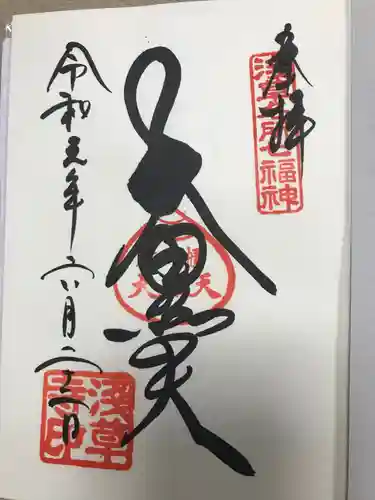 奉拝
浅草名所七福神
大黒天
令和元年六月二十二日
浅草寺印